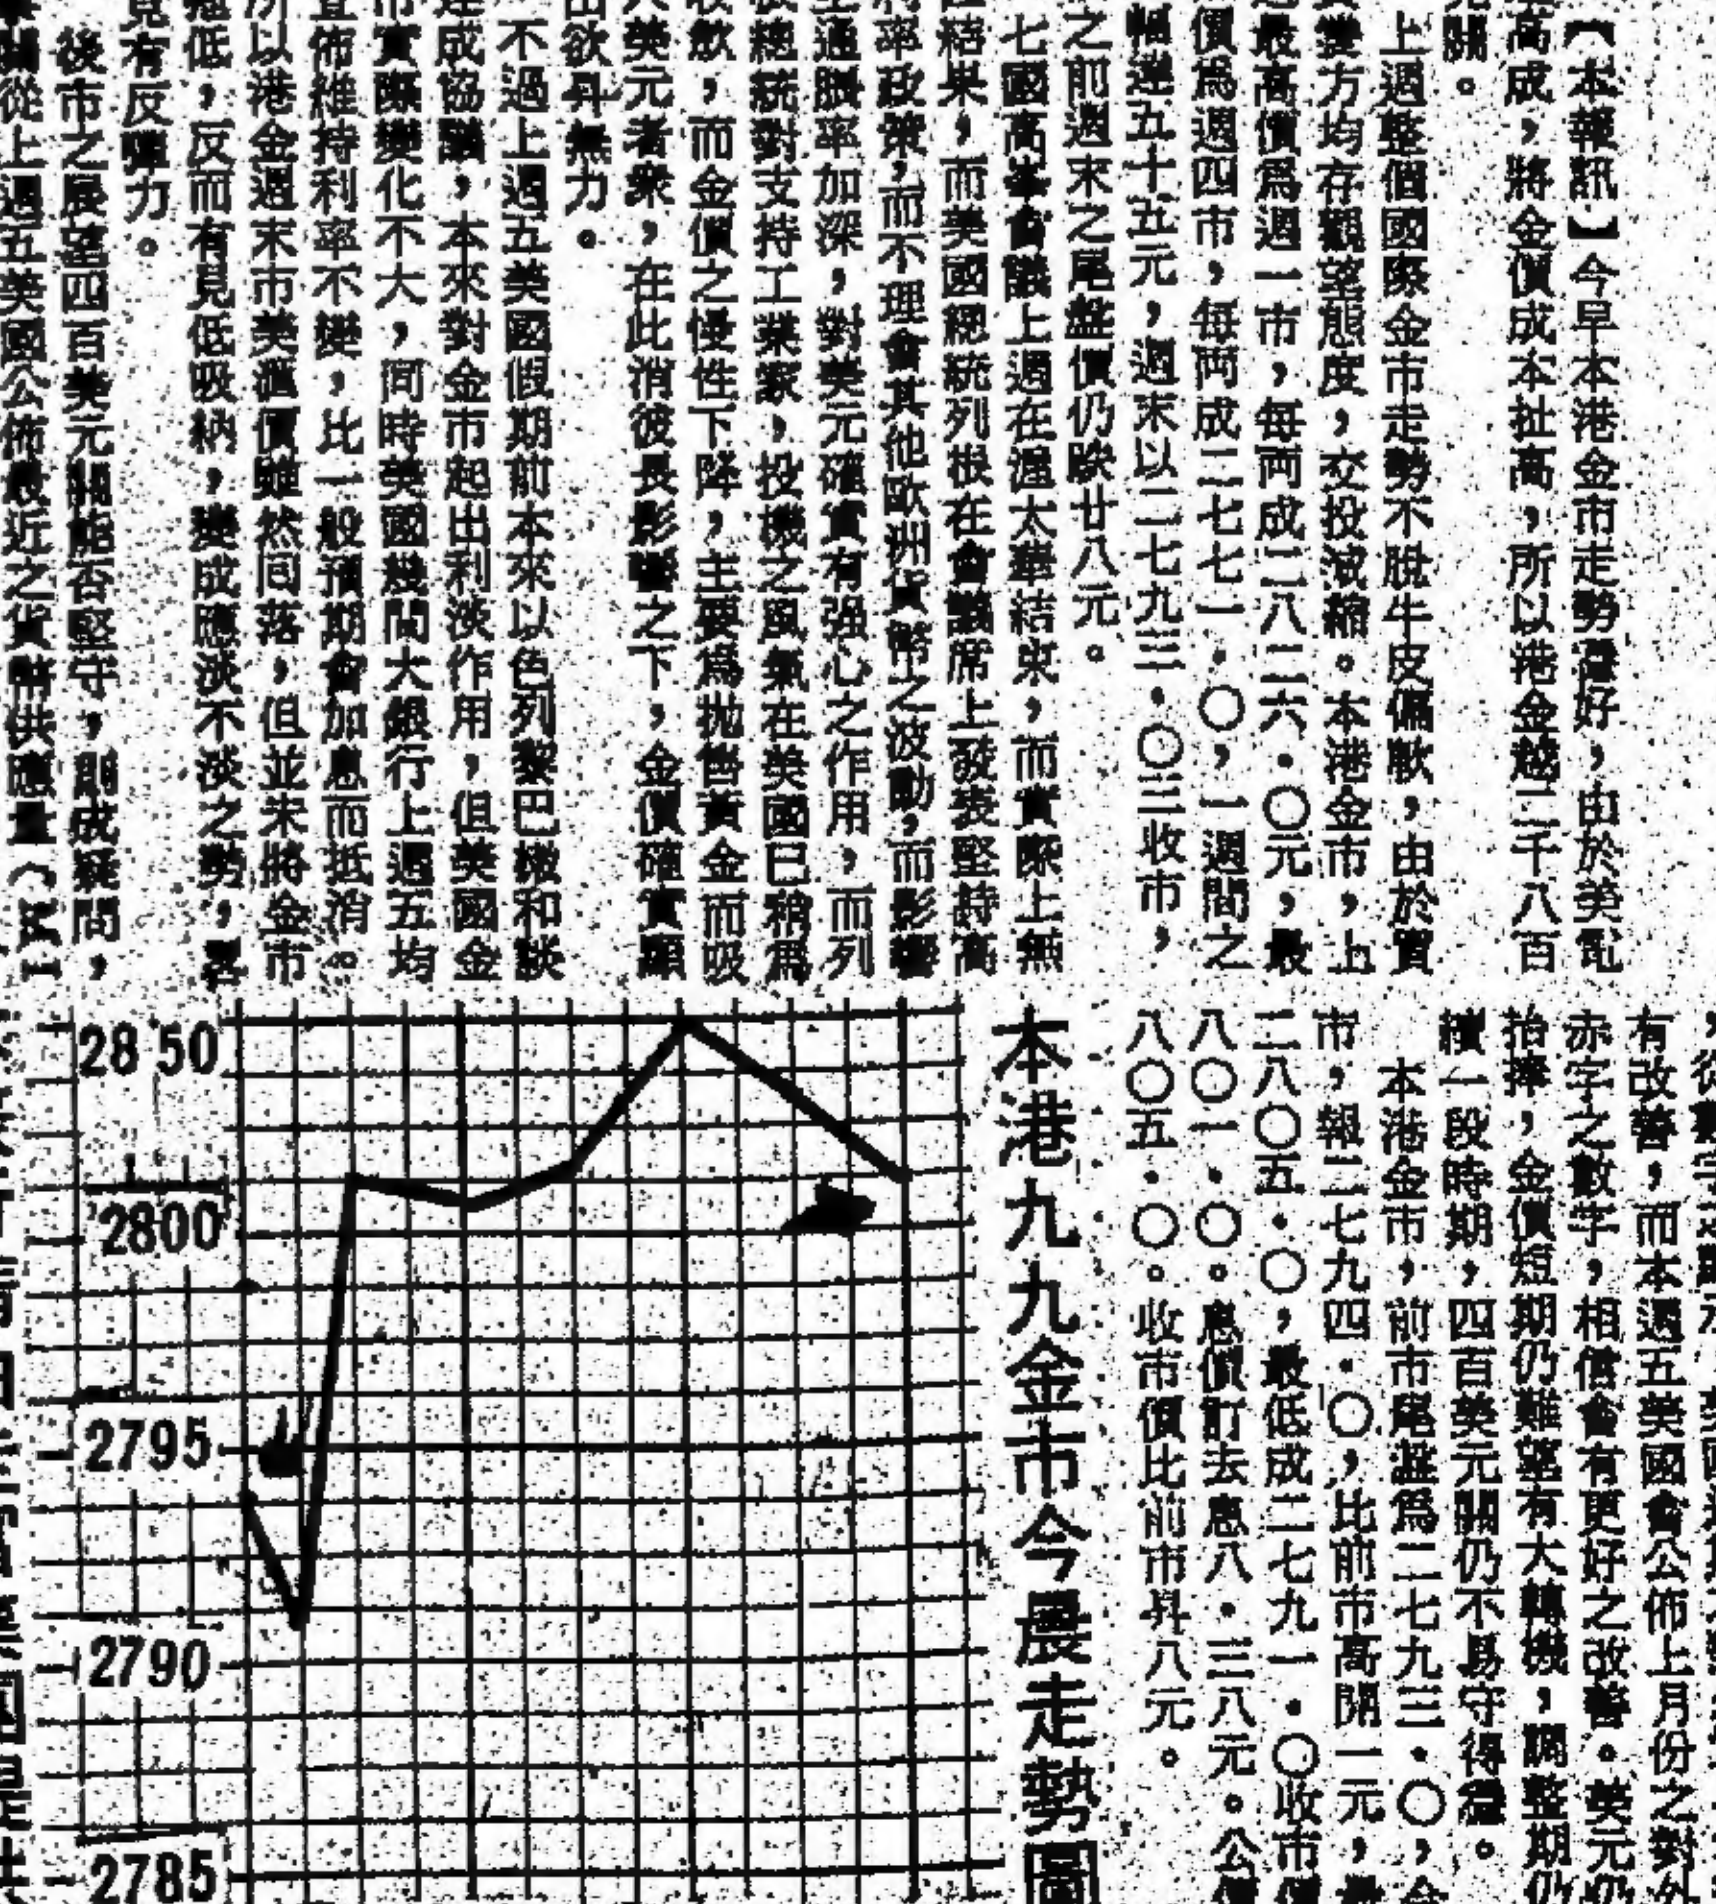 【本報訊】今早本港金市走勢靱好，由於美電
高成，將金價成本扯高，所以港金越二千八百
關。
上週整個國際金市走勢不脫牛皮偏軟，由於買
賣雙方均存觀望態度，交投減縮。本港金市，上
最高價爲週一市，每両成二八二六．〇元，最
價爲週四市，每両成二七七一．〇，一週間之
幅達五十五元，週末以二七九三．〇三收市，
之前週末之尾盤價仍跌廿八元。
七國高峯會議上週在渥太華結束，而實際上無
結果，而美國總統列根在會議席上發表堅持高
率政策，而不理會其他歐洲貨幣之波動，而影響
通脹率加深，對美元確實有强心之作用，而列
總統對支持工業家，投機之風氣在美國已稍爲
收歛，而金價之慢性下降，主要爲拋售黃金而吸
美元者衆，在此消彼長影響之下，金價確實顯
欲昇無力。
不過上週五美國假期前本來以色列黎巴嫩和談
達成協議，本來對金市起出利淡作用，但美國金
市實際變化不大，同時美國幾間大銀行上週五均
宣佈維持利率不變，比一般預期會加息而抵消。
所以港金週末市美滙價雖然回落，但並未將金市
低，反而有見低吸納，變成應淡不淡之勢，
見有反彈力。
後市之展望四百美元關能否堅守，則成疑問，
從上週五美國公佈最近之貨幣供應量（M1
有改善，而本週五美國會公佈上月份之對外
赤字之數字，相信會有更好之改善。美元仍
抬捧，金價短期仍難望有大轉機，調整期仍
續一段時期，四百美元關仍不易守得穩。
本港金市，前市尾盤爲二七九三．〇，今
市，報二七九四．〇，比前市高開一元，最
二八〇五．〇，最低成二七九一．〇收市價
八〇一．〇。息價訂去息八．三八元。公價
八〇五．〇。收市價比前市昇八元。
本港九九金市今晨走勢圖
28 50
2800
2795
2790
2785